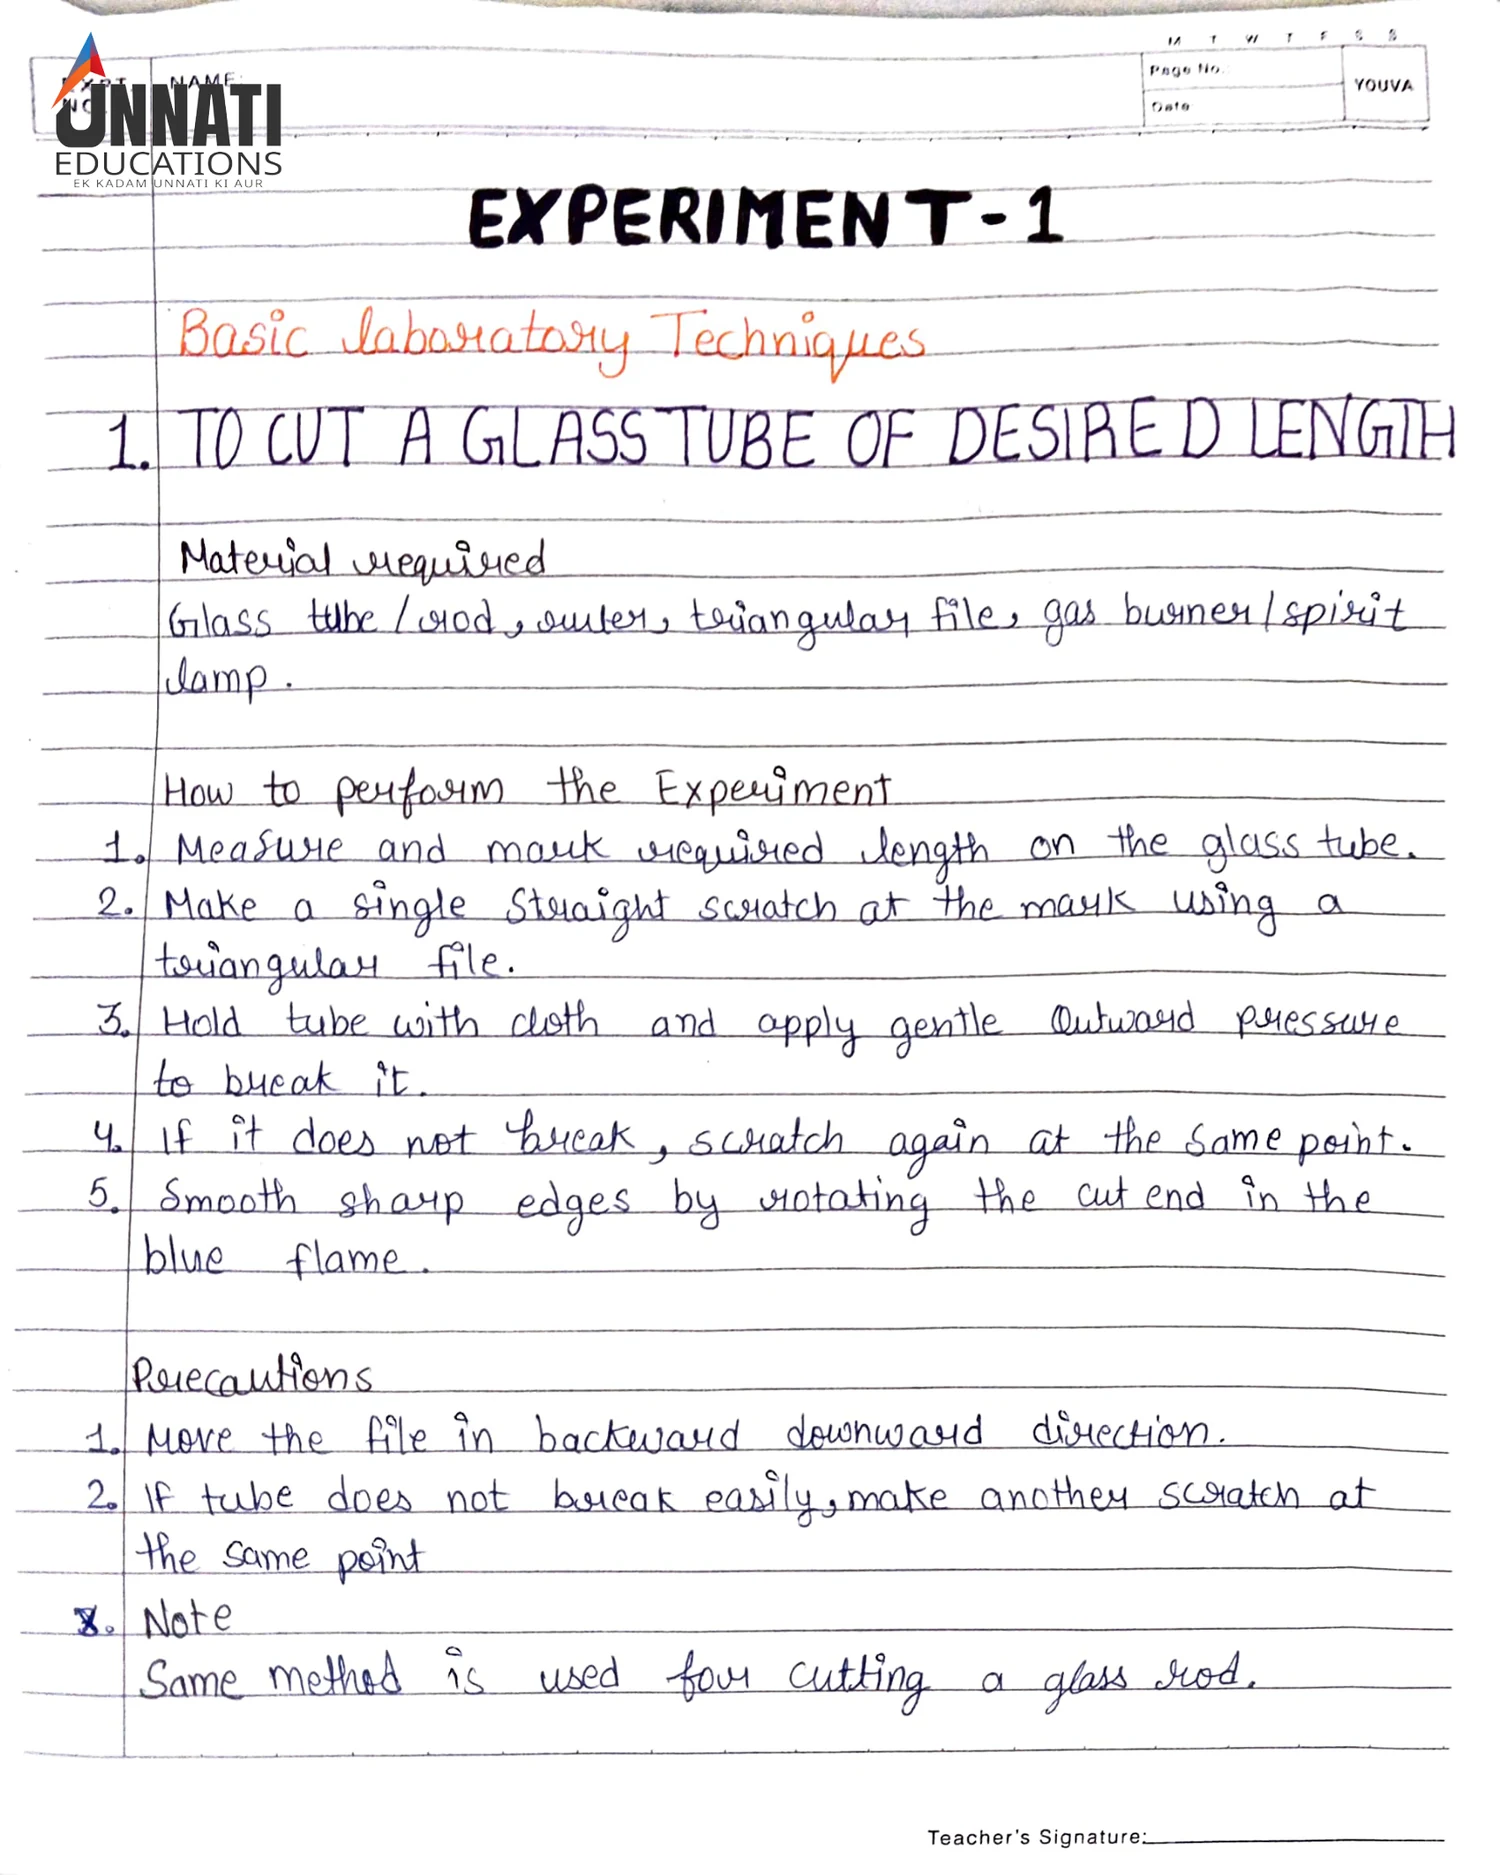 M T W T F S S
EXPT. NO. NAME:
Page No.:
Date:
YOUVA
UNNATI
EDUCATIONS
EK KADAM UNNATI KI AUR
EXPERIMENT-1
Basic laboratory Techniques
1. TO CUT A GLASS TUBE OF DESIRED LENGTH
Material required
Glass tube/rod, ruler, triangular file, gas burner/spirit
lamp.
How to perform the Experiment
1. Measure and mark required length on the glass tube.
2. Make a single straight scratch at the mark using a
triangular file.
3. Hold tube with cloth and apply gentle outward pressure
to break it.
4. If it does not break, scratch again at the same point.
5. Smooth sharp edges by rotating the cut end in the
blue flame.
Precautions
1. Move the file in backward downward direction.
2. If tube does not break easily, make another scratch at
the same point
Note
Same method is used for cutting a glass rod.
Teacher's Signature: